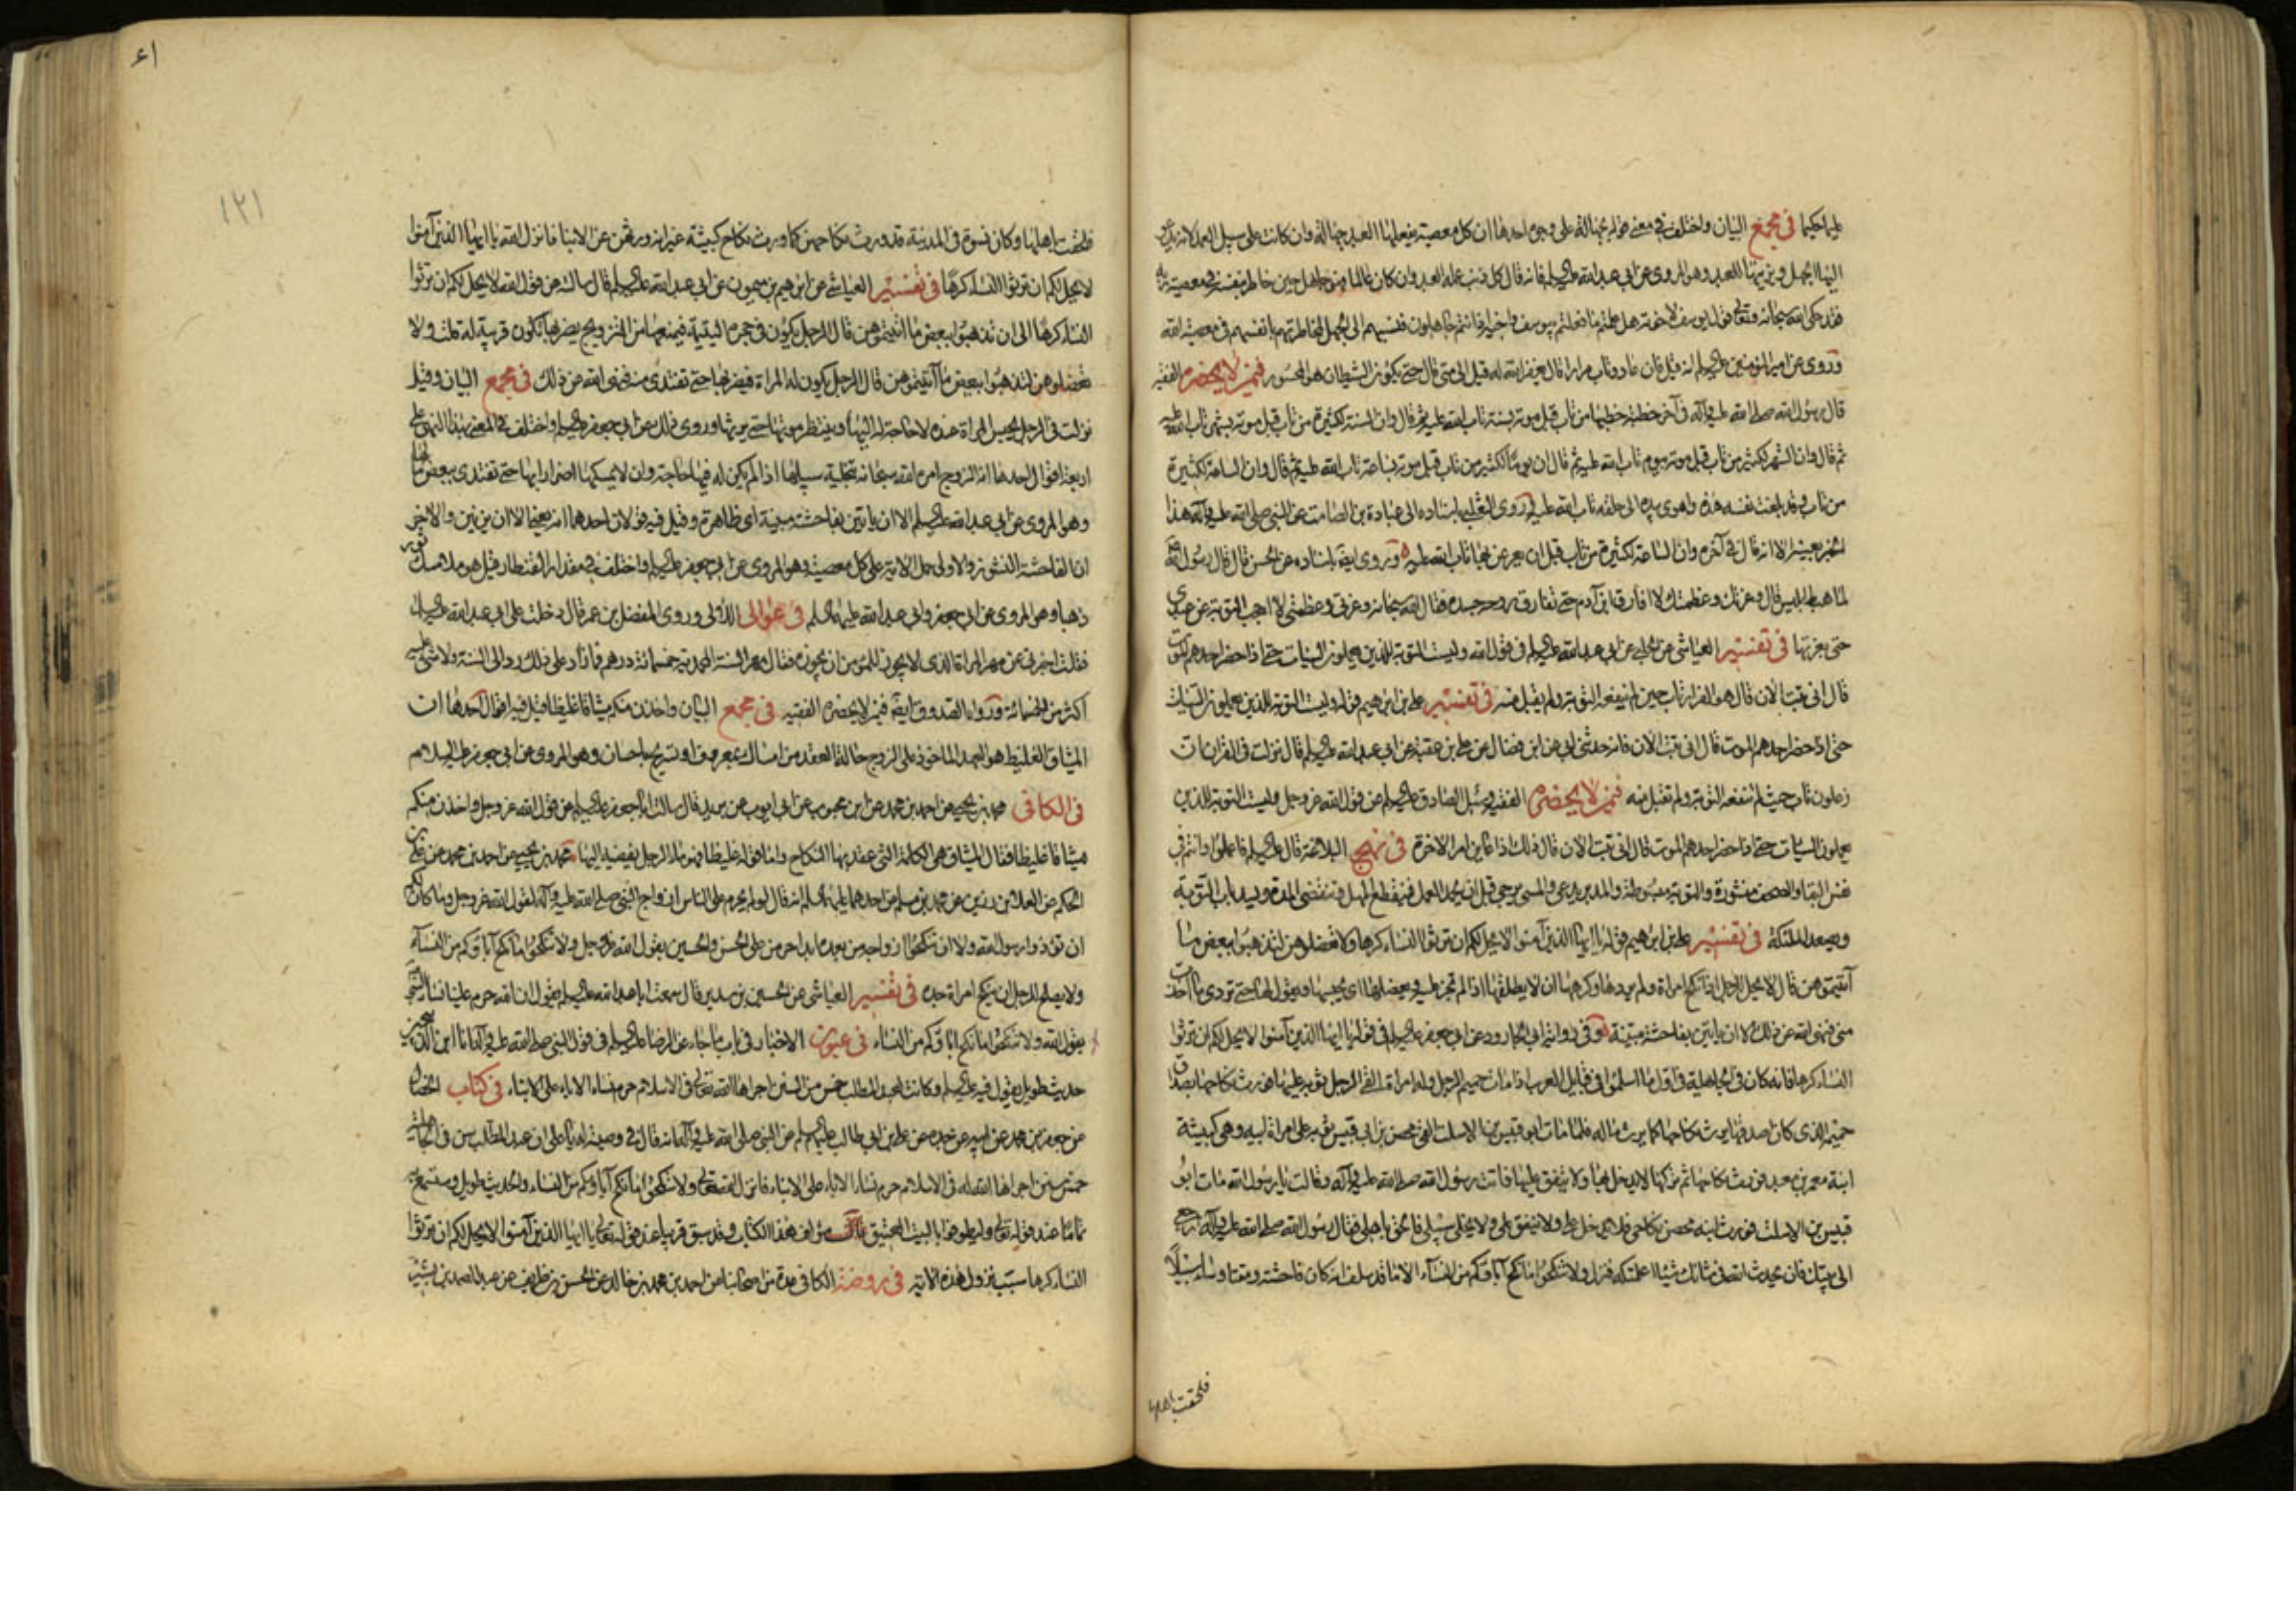 عليما حكيما في مجمع البيان واختلف في معنى قوله بجهالة على وجوه احدها ان كل معصية يفعلها العبد جهالة وان كانت على سبيل العمد لانه يدعو
اليها الجهل ويزينها للعبد وهو المروى عن ابي عبد الله عليه السلم فانه قال كل ذنب عمله العبد وان كان عالما فهو جاهل حين خاطر بنفسه في معصية ربه
فقد حكى الله سبحانه وتعالى قول يوسف لاخوته هل علمتم ما فعلتم بيوسف واخيه اذ انتم جاهلون فنسبهم الى الجهل لمخاطرتهم بانفسهم في معصية الله
وروى عن امير المؤمنين عليه السلم انه قيل فان عاد وتاب مرارا قال يغفر الله له قيل الى متى قال حتى يكون الشيطان هو المحسور فيمن لا يحضره الفقيه
قال رسول الله صلى الله عليه وآله في آخر خطبة خطبها من تاب قبل موته بسنة تاب الله عليه ثم قال وان السنة لكثيرة من تاب قبل موته بشهر تاب الله عليه
ثم قال وان الشهر لكثير من تاب قبل موته بيوم تاب الله عليه ثم قال ان يوما لكثير من تاب قبل موته بساعة تاب الله عليه ثم قال وان الساعة لكثيرة
من تاب وقد بلغت نفسه هذه واهوى بيده الى حلقه تاب الله عليه وروى الثعلبي باسناده الى عبادة بن الصامت عن النبي صلى الله عليه وآله هذا
الخبر بعينه الا انه قال في آخره وان الساعة لكثيرة من تاب قبل ان يغرغر بها تاب الله عليه وروى ايضا باسناده عن الحسن قال قال رسول الله
لما هبط ابليس قال وعزتك وعظمتك لا افارق ابن آدم حتى تفارق روحه جسده فقال الله سبحانه وعزتي وعظمتي لا احجب التوبة عن عبدي
حتى يغرغر بها في تفسير العياشي عن الحلبي عن ابي عبد الله عليه السلم في قول الله وليست التوبة للذين يعملون السيئات حتى اذا حضر احدهم الموت
قال اني تبت الان قال هو الفرار تاب حين لم ينفعه التوبة ولم يقبل منه في تفسير علي بن ابرهيم قوله وليست التوبة للذين يعملون السيئات
حتى اذا حضر احدهم الموت قال اني تبت الآن فانه حدثني ابي عن ابن فضال عن علي بن عقبة عن ابي عبد الله عليه السلم قال نزلت في القرآن ان
زعلون تاب حيث لم تنفعه التوبة ولم تقبل منه فيمن لا يحضره الفقيه وسئل الصادق عليه السلم عن قول الله عز وجل وليست التوبة للذين
يعملون السيئات حتى اذا حضر احدهم الموت قال اني تبت الان قال ذلك اذا عاين امر الاخرة في نهج البلاغة قال عليه السلم فاعملوا وانتم في
نفس البقاء والصحف منشورة والتوبة مبسوطة والمدبر يدعى والمسئ يرجى قبل ان يخمد العمل فينقطع المهل وتنقضى المدة ويسد باب التوبة
ويصعد الملئكة في تفسير علي بن ابرهيم قوله يا ايها الذين آمنوا لا يحل لكم ان ترثوا النساء كرها ولا تعضلوهن لتذهبوا ببعض ما
آتيتموهن قال لا يحل للرجل اذا نكح امراة ولم يردها وكرهها ان لا يطلقها اذا لم تجز عليه ويعضلها اى يحبسها ويقول لها حتى تردى ما اخذت
منى فنهى الله عن ذلك الا ان ياتين بفاحشة مبينة وفي رواية ابي الجارود عن ابي جعفر عليه السلم في قوله يا ايها الذين آمنوا لا يحل لكم ان ترثوا
النساء كرها فانه كان في الجاهلية في اول ما اسلموا في قبايل العرب اذا مات حميم الرجل وله امراة القى الرجل ثوبه عليها فورث نكاحها بصداق
حميمه الذى كان اصدقها يرث نكاحها كما يرث ماله فلما مات ابو قيس بن الاسلت القى محصن بن ابي قيس ثوبه على امراة ابيه وهي كبيشة
ابنة معمر بن معبد فورث نكاحها ثم تركها لا يدخل بها ولا ينفق عليها فاتت رسول الله صلى الله عليه وآله فقالت يا رسول الله مات ابو
قيس بن الاسلت فورث ابنه محصن نكاحي فلا يدخل علي ولا ينفق علي ولا يخلي سبيلي فالحق باهلي فقال رسول الله صلى الله عليه وآله ارجعي
الى بيتك فان يحدث الله في شانك شيئا اعلمتكه فنزل ولا تنكحوا ما نكح آباؤكم من النساء الا ما قد سلف انه كان فاحشة ومقتا وساء سبيلا
فلحقت باهلها
١٢١
فلحقت باهلها وكان نسوة في المدينة قد ورث نكاحهن كما ورث نكاح كبيشة غير انه ورثهن عن الابناء فانزل الله يا ايها الذين آمنوا
لا يحل لكم ان ترثوا النساء كرها في تفسير العياشي عن ابرهيم بن ميمون عن ابي عبد الله عليه السلم قال سالته عن قول الله لا يحل لكم ان ترثوا
النساء كرها الى ان تذهبوا ببعض ما اتيتموهن قال الرجل يكون في حجره اليتيمة فيمنعها من التزويج يضر بها تكون قريبة له قلت ولا
تعضلوهن لتذهبوا ببعض ما آتيتموهن قال الرجل يكون له المراة فيضر بها حتى تفتدى منه فنهى الله عن ذلك في مجمع البيان وقيل
نزلت في الرجل يحبس المراة عنده لا حاجة له اليها وينتظر موتها حتى يرثها وروى ذلك عن ابي جعفر عليه السلم واختلف في المعنى بهذا النهى على
اربعة اقوال احدها انه الزوج امره الله سبحانه بتخلية سبيلها اذا لم يكن له فيها حاجة وان لا يمسكها اضرارا بها حتى تفتدى ببعض مالها
وهو المروى عن ابي عبد الله عليه السلم الا ان ياتين بفاحشة مبينة اى ظاهرة وقيل فيه قولان احدهما انه يعني الا ان يزنين والآخر
ان الفاحشة النشوز والاولى حمل الآية على كل معصية وهو المروى عن ابي جعفر عليه السلم واختلف في مقدار القنطار قيل هو ملأ مسك ثور
ذهبا وهو المروى عن ابي جعفر وابي عبد الله عليهما السلم في غوالى اللآلى وروى المفضل بن عمر قال دخلت على ابي عبد الله عليه السلم
فقلت اخبرني عن مهر المراة الذى لا يجوز للمؤمن ان يجوزه فقال مهر السنة المحمدية خمسمائة درهم فما زاد على ذلك رد الى السنة ولا شئ عليه
اكثر من الخمسمائة ورواه الصدوق ايضا فيمن لا يحضره الفقيه في مجمع البيان واخذن منكم ميثاقا غليظا قيل فيه اقوال احدها ان
الميثاق الغليظ هو العهد الماخوذ على الزوج حالة العقد من امساك بمعروف او تسريح باحسان وهو المروى عن ابي جعفر عليه السلام
في الكافي محمد بن يحيى عن احمد بن محمد عن ابن محبوب عن ابي ايوب عن بريد قال سالت ابا جعفر عليه السلم عن قول الله عز وجل واخذن منكم
ميثاقا غليظا فقال الميثاق هي الكلمة التي عقد بها النكاح واما قوله غليظا فهو ماء الرجل يفضيه اليها محمد بن يحيى عن احمد بن محمد عن علي بن
الحكم عن العلاء بن رزين عن محمد بن مسلم عن احدهما عليهما السلم انه قال لو لم يحرم على الناس ازواج النبي صلى الله عليه وآله لقول الله عز وجل وما كان لكم
ان تؤذوا رسول الله ولا ان تنكحوا ازواجه من بعده ابدا حرمن على الحسن والحسين بقول الله عز وجل ولا تنكحوا ما نكح آباؤكم من النساء
ولا يصلح للرجل ان ينكح امراة جده في تفسير العياشي عن الحسين بن سدير قال سمعت ابا عبد الله عليه السلم يقول ان الله حرم علينا نساء النبي
بقول الله ولا تنكحوا ما نكح اباؤكم من النساء في عيون الاخبار في باب ما جاء عن الرضا عليه السلم في قول النبي صلى الله عليه وآله انا ابن الذبيحين
حديث طويل يقول فيه عليه السلم وكانت لعبد المطلب خمس من السنن اجراها الله تعالى في الاسلام حرم نساء الاباء على الابناء في كتاب الخصال
عن جعفر بن محمد عن ابيه عن جده عن علي بن ابي طالب عليهم السلم عن النبي صلى الله عليه وآله انه قال في وصيته له يا علي ان عبد المطلب سن في الجاهلية
خمس سنن اجراها الله له في الاسلام حرم نساء الاباء على الابناء فانزل الله تعالى ولا تنكحوا ما نكح آباؤكم من النساء والحديث طويل وستسمعه
تماما عند قوله تعالى وليطوفوا بالبيت العتيق قال مؤلف هذا الكتاب وقد سبق قريبا عند قوله تعالى يا ايها الذين آمنوا لا يحل لكم ان ترثوا
النساء كرها سبب نزول هذه الآية في روضة الكافي عدة من اصحابنا عن احمد بن محمد بن خالد عن الحسن بن ظريف عن عبد الصمد بن بشير